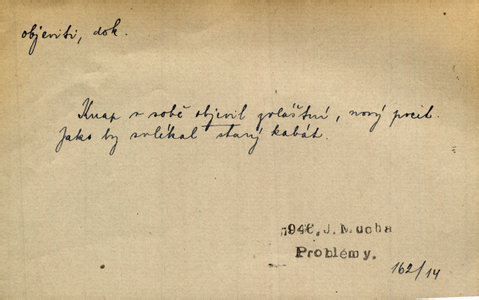 objeviti, dok.
Knap v sobě objevil zvláštní, nový pocit.
Jako by svlékal starý kabát.
1946, J. Mucha
Problémy.
162/14